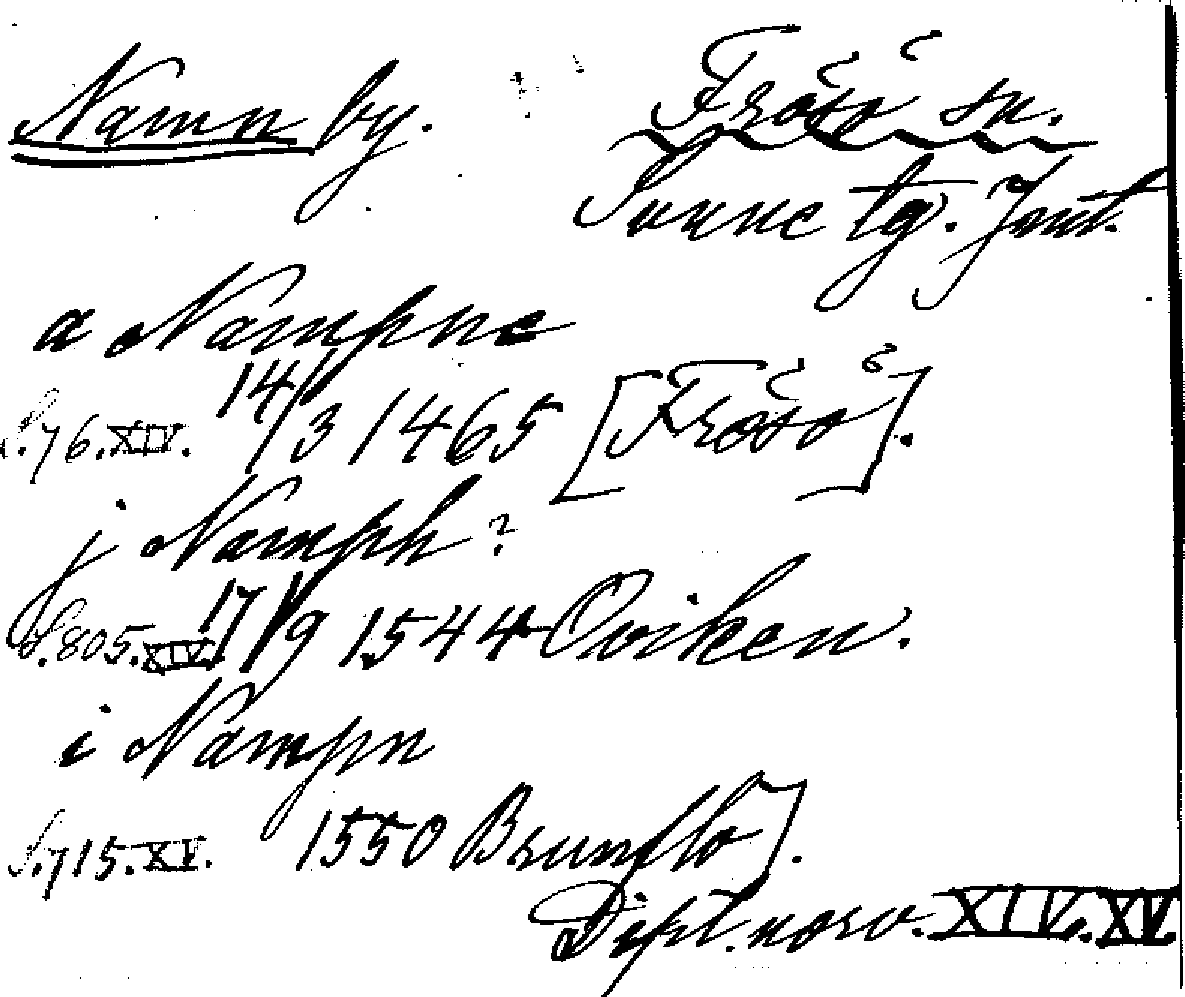 Namn by. Frösö sn.
Sunne tg. Jmt.
a Nampne
S. 76. XIV. 14/3 1465 [Frösö].
j Namph?
S. 805. XIV. 17/9 1544 Oviken.
i Nampn
S. 715. XV. 1550 Brunflo].
Dipl. norv. XIV. XV.